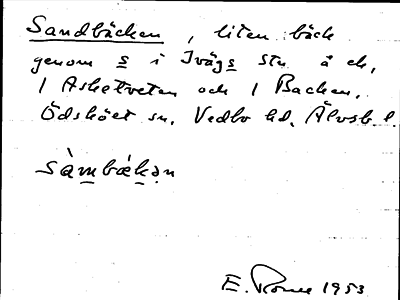 Sandbäcken, liten bäck
genom s i Ivägs stn å ch,
1 Asketveten och 1 Backen.
Ödskölt sn. Vedbo hd. Älvsb. l.
sàmbækən
E. 1953